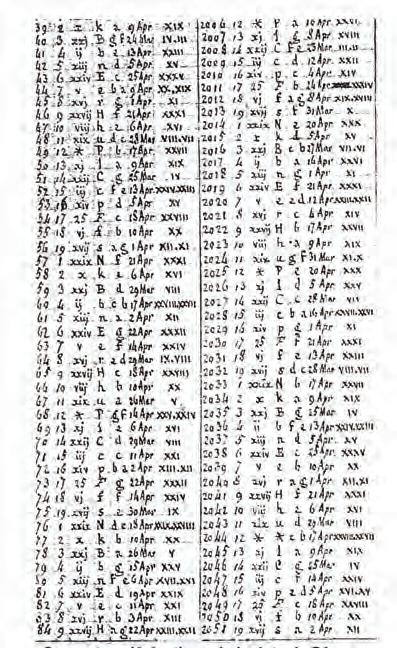 39 2 x k a 9 Apr XIX
40 3 xxj B g f 24 Mar IV.III
41 4 ij b e 13 Apr XXIII
42 5 xiij n d 5 Apr XV
43 6 xxiv E c 25 Apr XXXV
44 7 v e b a 9 Apr XX.XIX
45 8 xvj r g 1 Apr XI
46 9 xxvij H f 21 Apr XXXI
47 10 viij h e 6 Apr XVI
48 11 xix u d c 28 Mar VIII.VII
49 12 * P b 17 Apr XXVII
50 13 xj l a 9 Apr XIX
51 14 xxij C g 25 Mar IV
52 15 iij c f e 13 Apr XXIV.XXIII
53 16 xiv p d 5 Apr XV
54 17 25 F c 18 Apr XXVIII
55 18 vj f b 10 Apr XX
56 19 xvij s a g 1 Apr XII.XI
57 1 xxix N f 21 Apr XXXI
58 2 x k e 6 Apr XVI
59 3 xxj B d 29 Mar VIII
60 4 ij b c b 17 Apr XXVIII.XXVII
61 5 xiij n a 2 Apr XII
62 6 xxiv E g 22 Apr XXXII
63 7 v e f 14 Apr XXIV
64 8 xvj r e d 29 Mar IX.VIII
65 9 xxvij H c 18 Apr XXVIII
66 10 viij h b 10 Apr XX
67 11 xix u a 26 Mar V
68 12 * P g f 14 Apr XXV.XXIV
69 13 xj l e 6 Apr XVI
70 14 xxij C d 29 Mar VIII
71 15 iij c c 11 Apr XXI
72 16 xiv p b a 2 Apr XIII.XII
73 17 25 F g 22 Apr XXXII
74 18 vj f f 14 Apr XXIV
75 19 xvij s e 30 Mar IX
76 1 xxix N d c 18 Apr XXIX.XXVIII
77 2 x k b 10 Apr XX
78 3 xxj B a 26 Mar V
79 4 ij b g 15 Apr XXV
80 5 xiij n f e 6 Apr XVII.XVI
81 6 xxiv E d 19 Apr XXIX
82 7 v e c 11 Apr XXI
83 8 xvj r b 3 Apr XIII
84 9 xxvij H a g 22 Apr XXXIII.XXXII
2006 12 * P a 16 Apr XXVI
2007 13 xj l g 8 Apr XVIII
2008 14 xxij C f e 23 Mar III.II
2009 15 iij c d 12 Apr XXII
2010 16 xiv p c 4 Apr XIV
2011 17 25 F b 24 Apr XXXIV
2012 18 vj f a g 8 Apr XIX.XVIII
2013 19 xvij s f 31 Mar X
2014 1 xxix N e 20 Apr XXX
2015 2 x k d 5 Apr XV
2016 3 xxj B c b 27 Mar VII.VI
2017 4 ij b a 16 Apr XXVI
2018 5 xiij n g 1 Apr XI
2019 6 xxiv E f 21 Apr XXXI
2020 7 v e e d 12 Apr XXIII.XXII
2021 8 xvj r c 4 Apr XIV
2022 9 xxvij H b 17 Apr XXVII
2023 10 viij h a 9 Apr XIX
2024 11 xix u g f 31 Mar XI.X
2025 12 * P e 20 Apr XXX
2026 13 xj l d 5 Apr XV
2027 14 xxij C c 28 Mar VII
2028 15 iij c b a 16 Apr XXVII.XXVI
2029 16 xiv p g 1 Apr XI
2030 17 25 F f 21 Apr XXXI
2031 18 vj f e 13 Apr XXIII
2032 19 xvij s d c 28 Mar VIII.VII
2033 1 xxix N b 17 Apr XXVII
2034 2 x k a 9 Apr XIX
2035 3 xxj B g 25 Mar IV
2036 4 ij b f e 13 Apr XXIV.XXIII
2037 5 xiij n d 5 Apr XV
2038 6 xxiv E c 25 Apr XXXV
2039 7 v e b 10 Apr XX
2040 8 xvj r a g 1 Apr XII.XI
2041 9 xxvij H f 21 Apr XXXI
2042 10 viij h e 6 Apr XVI
2043 11 xix u d 29 Mar VIII
2044 12 * * c b 17 Apr XXVIII.XXVII
2045 13 xj l a 9 Apr XIX
2046 14 xxij C g 25 Mar IV
2047 15 iij c f 14 Apr XXIV
2048 16 xiv p e d 5 Apr XVI.XV
2049 17 25 F c 18 Apr XXVIII
2050 18 vj f b 10 Apr XX
2051 19 xvij s a 2 Apr XII